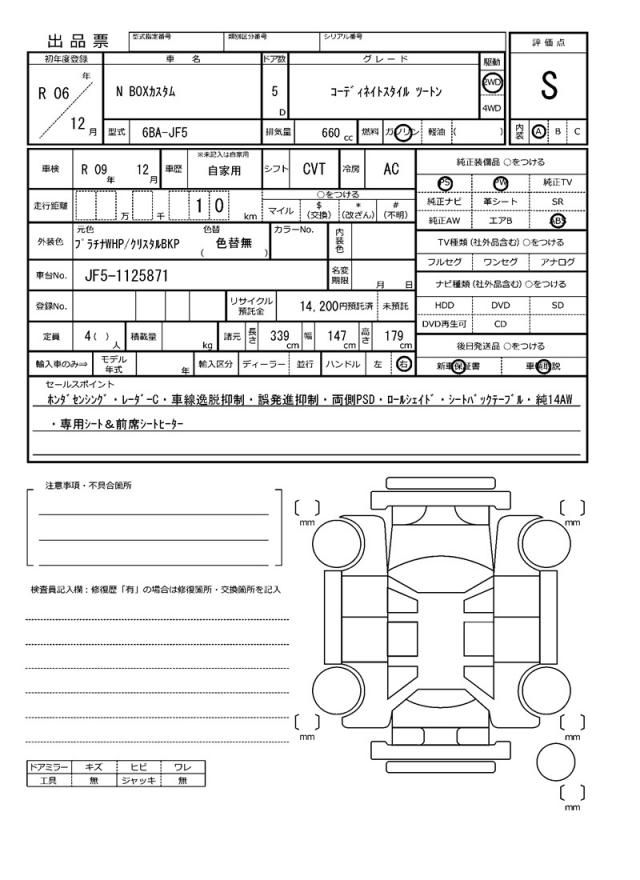 出品票
型式指定番号 類別区分番号 シリアル番号
初年度登録 車名 ドア数 グレード 駆動 評価点
R 06 年 12 月
N BOXカスタム 5 D コーディネイトスタイル ツートン 2WD 4WD S
型式 6BA-JF5 排気量 660 cc 燃料 ガソリン 軽油 ( ) 内装 A B C
車検 R 09 年 12 月 車歴 ※未記入は自家用 自家用 シフト CVT 冷房 AC 純正装備品 ○をつける
PS PW 純正TV
走行距離 万 千 1 0 km ○をつける
マイル $(交換) *(改ざん) #(不明)
純正ナビ 革シート SR
純正AW エアB ABS
外装色 元色 プラチナWHP/クリスタルBKP 色替 ( 色替無 ) カラーNo. 内装色
TV種類 (社外品含む) ○をつける
フルセグ ワンセグ アナログ
車台No. JF5-1125871 名変期限 月 日
ナビ種類 (社外品含む) ○をつける
登録No. リサイクル預託金 14,200円預託済 未預託
HDD DVD SD
DVD再生可 CD
定員 4( )人 積載量 kg 諸元 長さ 339 cm 幅 147 cm 高さ 179 cm
後日発送品 ○をつける
輸入車のみ⇒ モデル年式 年 輸入区分 ディーラー 並行 ハンドル 左 右
新車保証書 車輌取説
セールスポイント
ホンダセンシング・レーダーC・車線逸脱抑制・誤発進抑制・両側PSD・ロールシェイド・シートバックテーブル・純14AW
・専用シート&前席シートヒーター
注意事項・不具合箇所
mm mm
検査員記入欄：修復歴「有」の場合は修復箇所・交換箇所を記入
mm mm
ドアミラー キズ ヒビ ワレ
工具 無 ジャッキ 無
mm